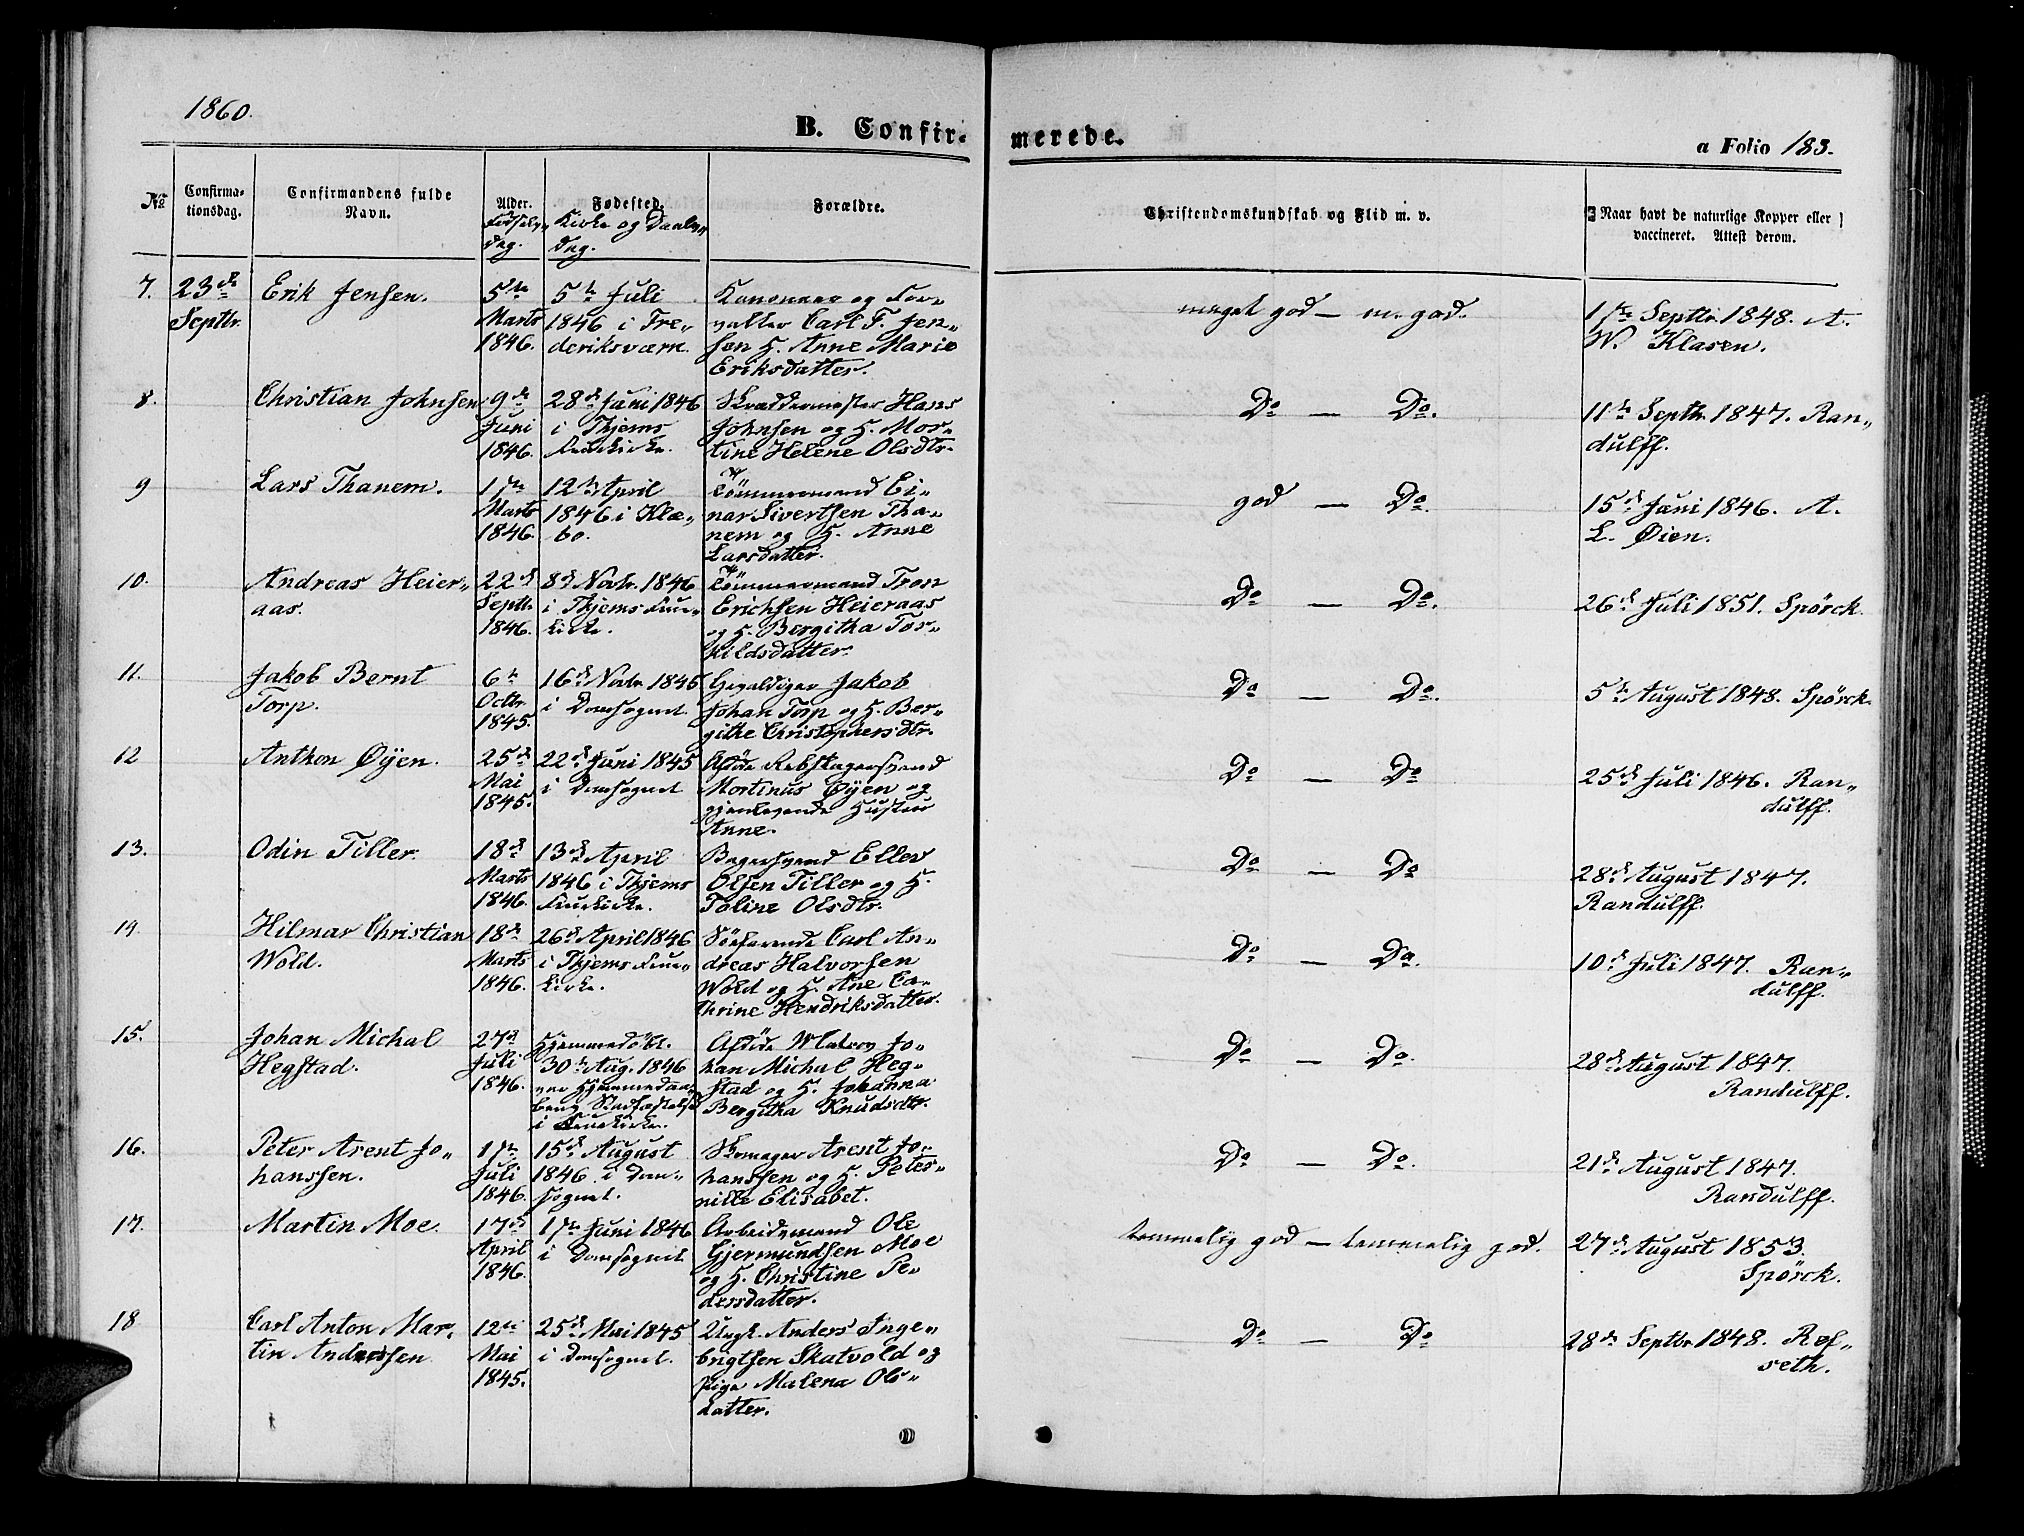 1860.
B. Confirmerede.
a Folio 183.
No
Confirmationsdag.
Confirmandens fulde Navn.
Alder.
Fødselsdag.
Fødested.
Kirke og Daabsdag.
Forældre.
Christendomskundskab og Flid m. v.
Naar havt de naturlige Kopper eller vaccineret. Attest derom.
7. 23de Septbr. Erik Jensen.
5te Marts 1846.
5te Juli 1846 i Frederiksværn.
Kanoneer og Forvalter Carl F. Jensen H. Anne Marie Eriksdatter.
meget god — m. god.
1ste Septbr. 1848. A. W. Klasen.
8. Christian Johnsen
9de Juni 1846.
28de Juni 1846 i Thjems Fruekirke.
Skræddermester Hans Johnsen og H. Mortine Helene Olsdtr.
Do — Do.
11te Septbr. 1847. Randulff.
9 Lars Thanem.
1ste Marts 1846.
12te April 1846 i Klæbo.
Tømmermand Einar Sivertsen Thanem og H. Anne Larsdatter.
god — Do.
15de Juni 1846. A. L. Øien.
10. Andreas Heieraas.
22de Septbr. 1846.
8de Novbr. 1846 i Thjems Fruekirke.
Tømmermand Tron Erichsen Heieraas og H. Bergitha Torkildsdatter.
Do — Do.
26de Juli 1851. Spörck.
11. Jakob Bernt Torp.
6te Octbr. 1845.
16de Novbr. 1845 i Domsognet.
Gevaldiger Jakob Johan Torp og H. Bergithe Christophersdtr.
Do — Do.
5te August 1848. Spörck.
12 Anthon Øyen.
25de Mai 1845.
22de Juni 1845 i Domsognet
Afdøde Rebslagersvend Mortinus Øyen og gjenlevende Hustru Anne.
Do — Do
25de Juli 1846. Randulff.
13. Odin Tiller.
18de Marts 1846.
13de April 1846 i Thjems Fruekirke.
Bagersvend Eller Olsen Tiller og H. Toline Olsdtr.
Do — Do
28de August 1847. Randulff.
14. Hilmar Christian Wold.
18de Marts 1846.
26de April 1846 i Thjems Fruekirke.
Søfarende Carl Andreas Halvorsen Wold og H. Ane Cathrine Hendriksdatter.
Do — Do.
10de Juli 1847. Randulff.
15. Johan Michal Hegstad.
27de Juli 1846.
Hjemmedøbt. 30te Aug. 1846 Hjemmedaabens Stadfæstelse i Fruekirke.
Afdøde Johan Michal Hegstad og H. Johanna Bergitha Knudsdtr.
Do — Do.
28de August 1847. Randulff.
16. Peter Arent Johanssen.
1ste Juli 1846.
15de August 1846 i Domsognet.
Skomager Arent Johanssen og H. Peternille Elisabet.
Do — Do.
21de August 1847. Randulff.
17. Martin Moe.
17de April 1846.
1ste Juni 1846 i Domsognet
Arbeidsmand Ole Gjermundsen Moe og H. Christine Pedersdatter.
temmelig god — temmelig god.
27de August 1853. Spörck.
18 Carl Anton Martin Andersen
12te Mai 1845.
25de Mai 1845 i Domsognet.
Ungk. Anders Ingebrigtsen Skatvold og Pige Malena Olsdatter.
Do — Do
28de Septbr 1848. Rofseth.